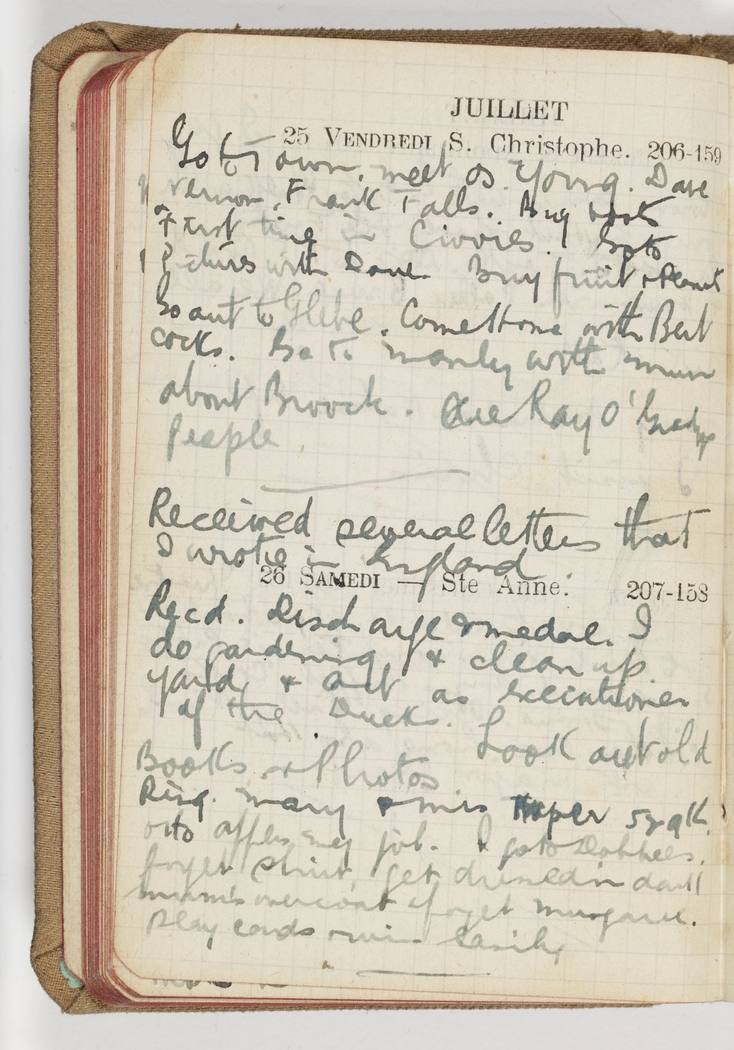 JUILLET
25 VENDREDI S. Christophe. 206-159
Go to Town. meet Os Young. Dave
Vernon, Frank Falls. Buy boots
First time in Civvies. Go to
Pictures with Dave Buy fruit &
Go out to Glebe. Come Home with Bert
cocks. Go to Manly with mum
about Brooch. See Ray O'Gradys
people
Received several letters that
I wrote in England.
26 SAMEDI — Ste Anne. 207-158
Recd. Discharge & medal. I
do gardening & clean up
yard & act as executioner
of the Ducks. Look out old
Books & Photos
Ring Mary & miss
my job. I go to
forget shirt, get dressed in dark
mum's overcoat forget
Play cards & win easily